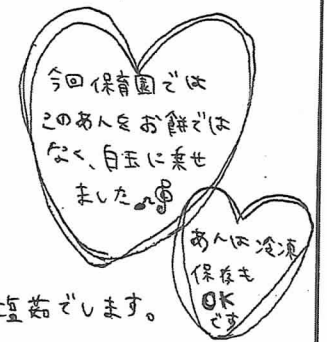 今回保育園では
このあんをお餅では
なく、白玉に乗せ
ました
あんは冷凍
保存も
OK
です
塩茹でします。